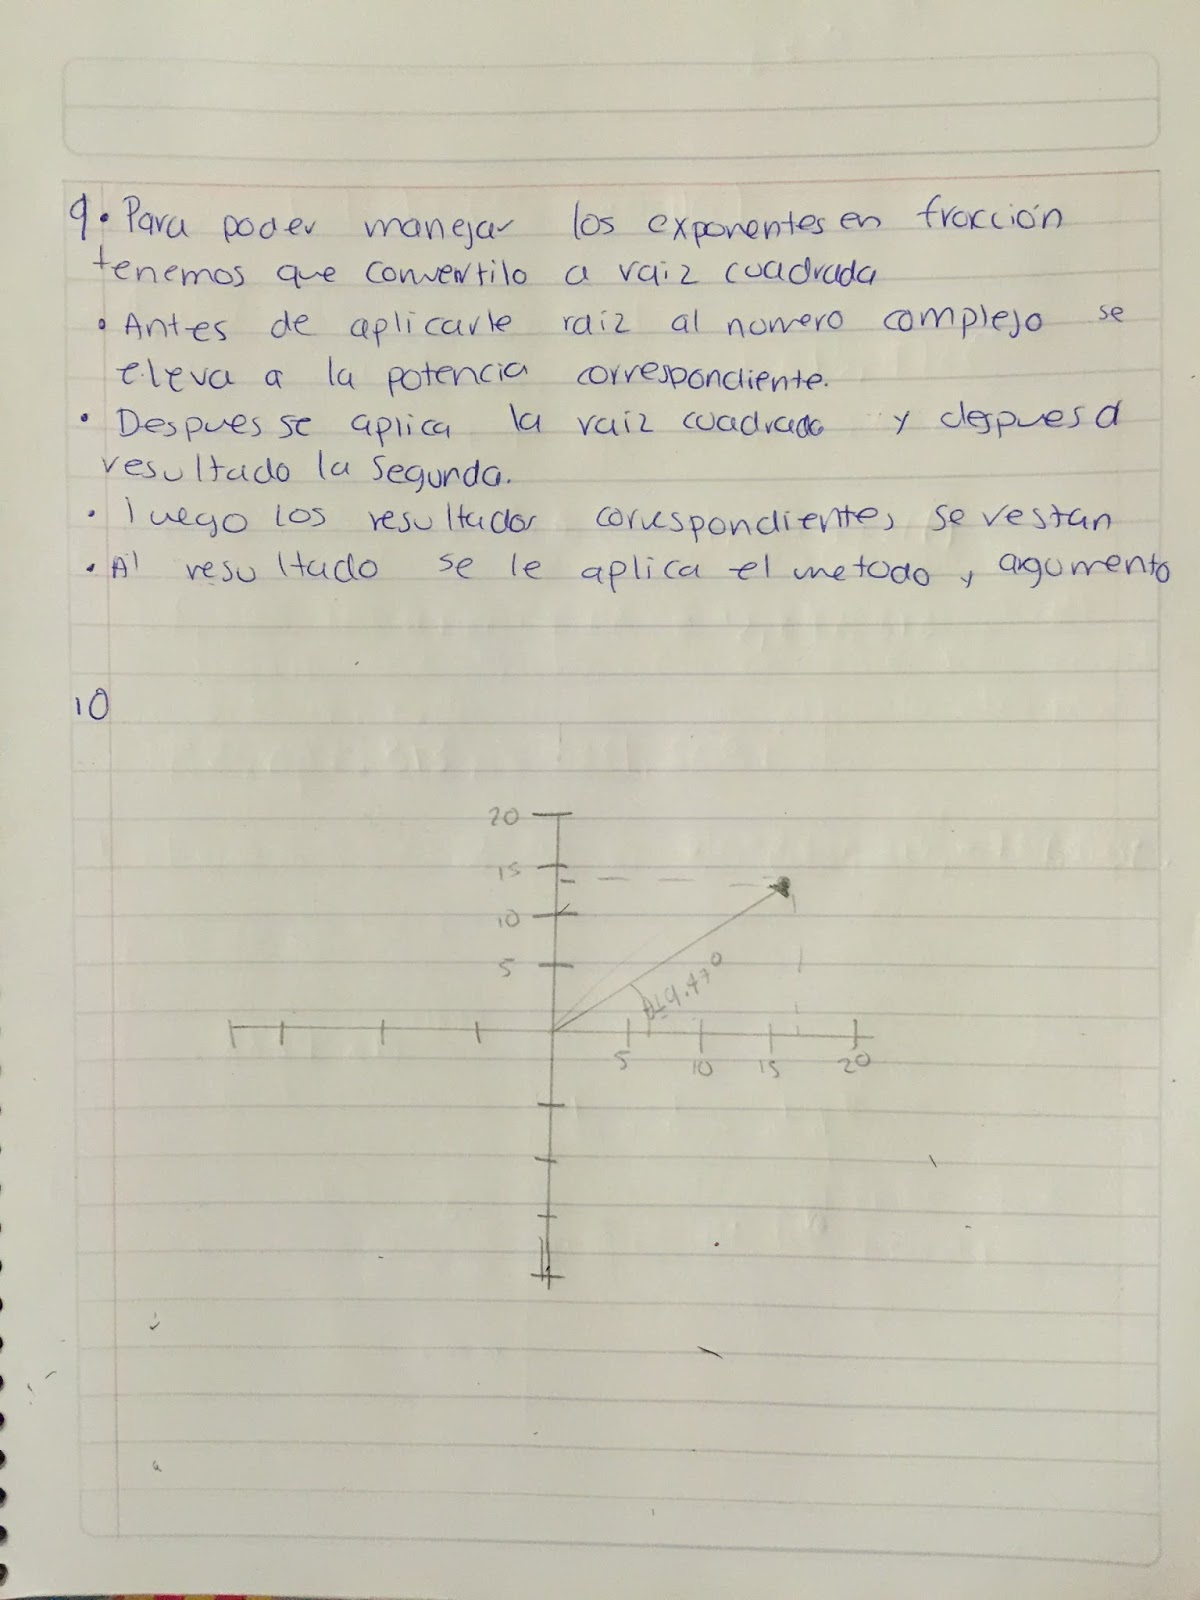 9. Para poder manejar los exponentes en fracción
tenemos que convertilo a raiz cuadrada
• Antes de aplicarle raiz al numero complejo se
eleva a la potencia correspondiente.
• Despues se aplica la raiz cuadrada y despues al
resultado la segunda.
• luego los resultados correspondientes se restan
• Al resultado se le aplica el metodo y argumento
10
20
15
10
5
5 10 15 20